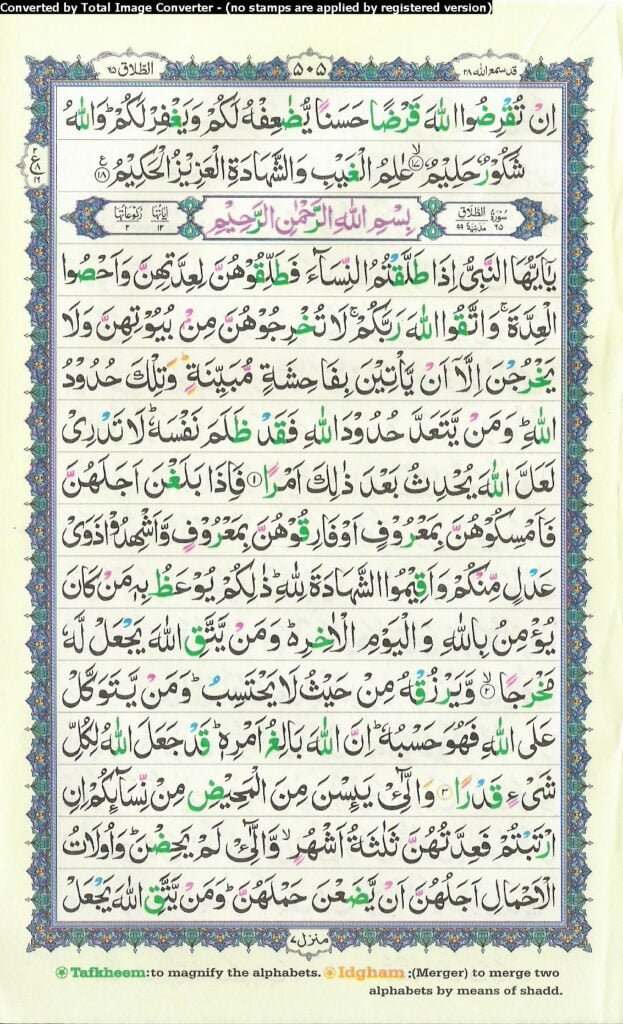 Converted by Total Image Converter - (no stamps are applied by registered version)
الطلاق ٦٥
٥٠٥
قد سمع الله ٢٨
اِنْ تُقْرِضُوا اللّٰهَ قَرْضًا حَسَنًا يُّضٰعِفْهُ لَكُمْ وَيَغْفِرْ لَكُمْ ؕ وَاللّٰهُ
شَكُوْرٌ حَلِيْمٌ ۙ﴿۱۷﴾ عٰلِمُ الْغَيْبِ وَالشَّهَادَةِ الْعَزِيْزُ الْحَكِيْمُ ﴿۱۸﴾
سُوْرَةُ الطَّلَاق ٦٥ مَدَنِيَّةٌ ٩٩
بِسْمِ اللّٰهِ الرَّحْمٰنِ الرَّحِيْمِ
اٰيَاتُهَا ١٢ رُكُوْعَاتُهَا ٢
يٰۤاَيُّهَا النَّبِىُّ اِذَا طَلَّقْتُمُ النِّسَآءَ فَطَلِّقُوْهُنَّ لِعِدَّتِهِنَّ وَاَحْصُوا
الْعِدَّةَ ۚ وَاتَّقُوا اللّٰهَ رَبَّكُمْ ۚ لَا تُخْرِجُوْهُنَّ مِنْۢ بُيُوْتِهِنَّ وَلَا
يَخْرُجْنَ اِلَّاۤ اَنْ يَّاْتِيْنَ بِفَاحِشَةٍ مُّبَيِّنَةٍ ؕ وَتِلْكَ حُدُوْدُ
اللّٰهِ ؕ وَمَنْ يَّتَعَدَّ حُدُوْدَ اللّٰهِ فَقَدْ ظَلَمَ نَفْسَهٗ ؕ لَا تَدْرِىْ
لَعَلَّ اللّٰهَ يُحْدِثُ بَعْدَ ذٰلِكَ اَمْرًا ﴿۱﴾ فَاِذَا بَلَغْنَ اَجَلَهُنَّ
فَاَمْسِكُوْهُنَّ بِمَعْرُوْفٍ اَوْ فَارِقُوْهُنَّ بِمَعْرُوْفٍ وَّاَشْهِدُوْا ذَوَىْ
عَدْلٍ مِّنْكُمْ وَاَقِيْمُوا الشَّهَادَةَ لِلّٰهِ ؕ ذٰلِكُمْ يُوْعَظُ بِهٖ مَنْ كَانَ
يُؤْمِنُ بِاللّٰهِ وَالْيَوْمِ الْاٰخِرِ ؕ وَمَنْ يَّتَّقِ اللّٰهَ يَجْعَلْ لَّهٗ
مَخْرَجًا ۙ﴿۲﴾ وَّيَرْزُقْهُ مِنْ حَيْثُ لَا يَحْتَسِبُ ؕ وَمَنْ يَّتَوَكَّلْ
عَلَى اللّٰهِ فَهُوَ حَسْبُهٗ ؕ اِنَّ اللّٰهَ بَالِغُ اَمْرِهٖ ؕ قَدْ جَعَلَ اللّٰهُ لِكُلِّ
شَىْءٍ قَدْرًا ﴿۳﴾ وَالّٰٓـىِٔىْ يَئِسْنَ مِنَ الْمَحِيْضِ مِنْ نِّسَآئِكُمْ اِنِ
ارْتَبْتُمْ فَعِدَّتُهُنَّ ثَلٰثَةُ اَشْهُرٍ ۙ وَّالّٰٓـىِٔىْ لَمْ يَحِضْنَ ؕ وَاُولَاتُ
الْاَحْمَالِ اَجَلُهُنَّ اَنْ يَّضَعْنَ حَمْلَهُنَّ ؕ وَمَنْ يَّتَّقِ اللّٰهَ يَجْعَلْ
منزل ٧
Tafkheem:to magnify the alphabets. Idgham :(Merger) to merge two
alphabets by means of shadd.